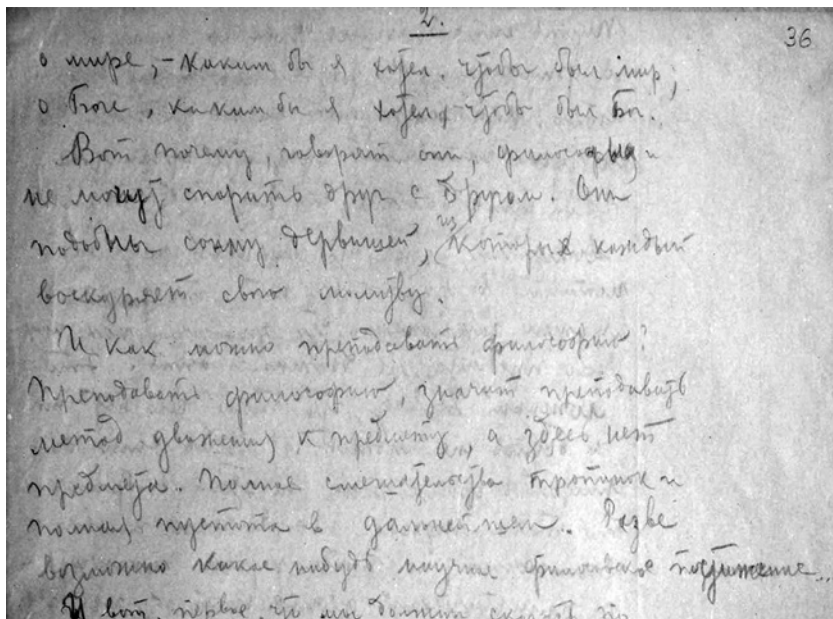 2.
36
о мире, – каким бы я хотел, чтобы был мир,
о Боге, каким бы я хотел, чтобы был Бог.
Вот почему, говорят они, философы
не могут спорить друг с другом. Они
подобны сонму дервишей, из которых каждый
воскуряет свою молитву.
И как можно преподавать философию?
Преподавать философию, значит преподавать
метод движения к предмету, а здесь нет
предмета. Полное тропинок и
полная пустота в дальней цели. Разве
возможно какое нибудь научное философское постижение...
И вот, первое, что мы должны сказать по